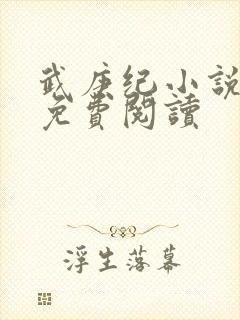 武庚纪小說
免費閱讀
浮生落幕